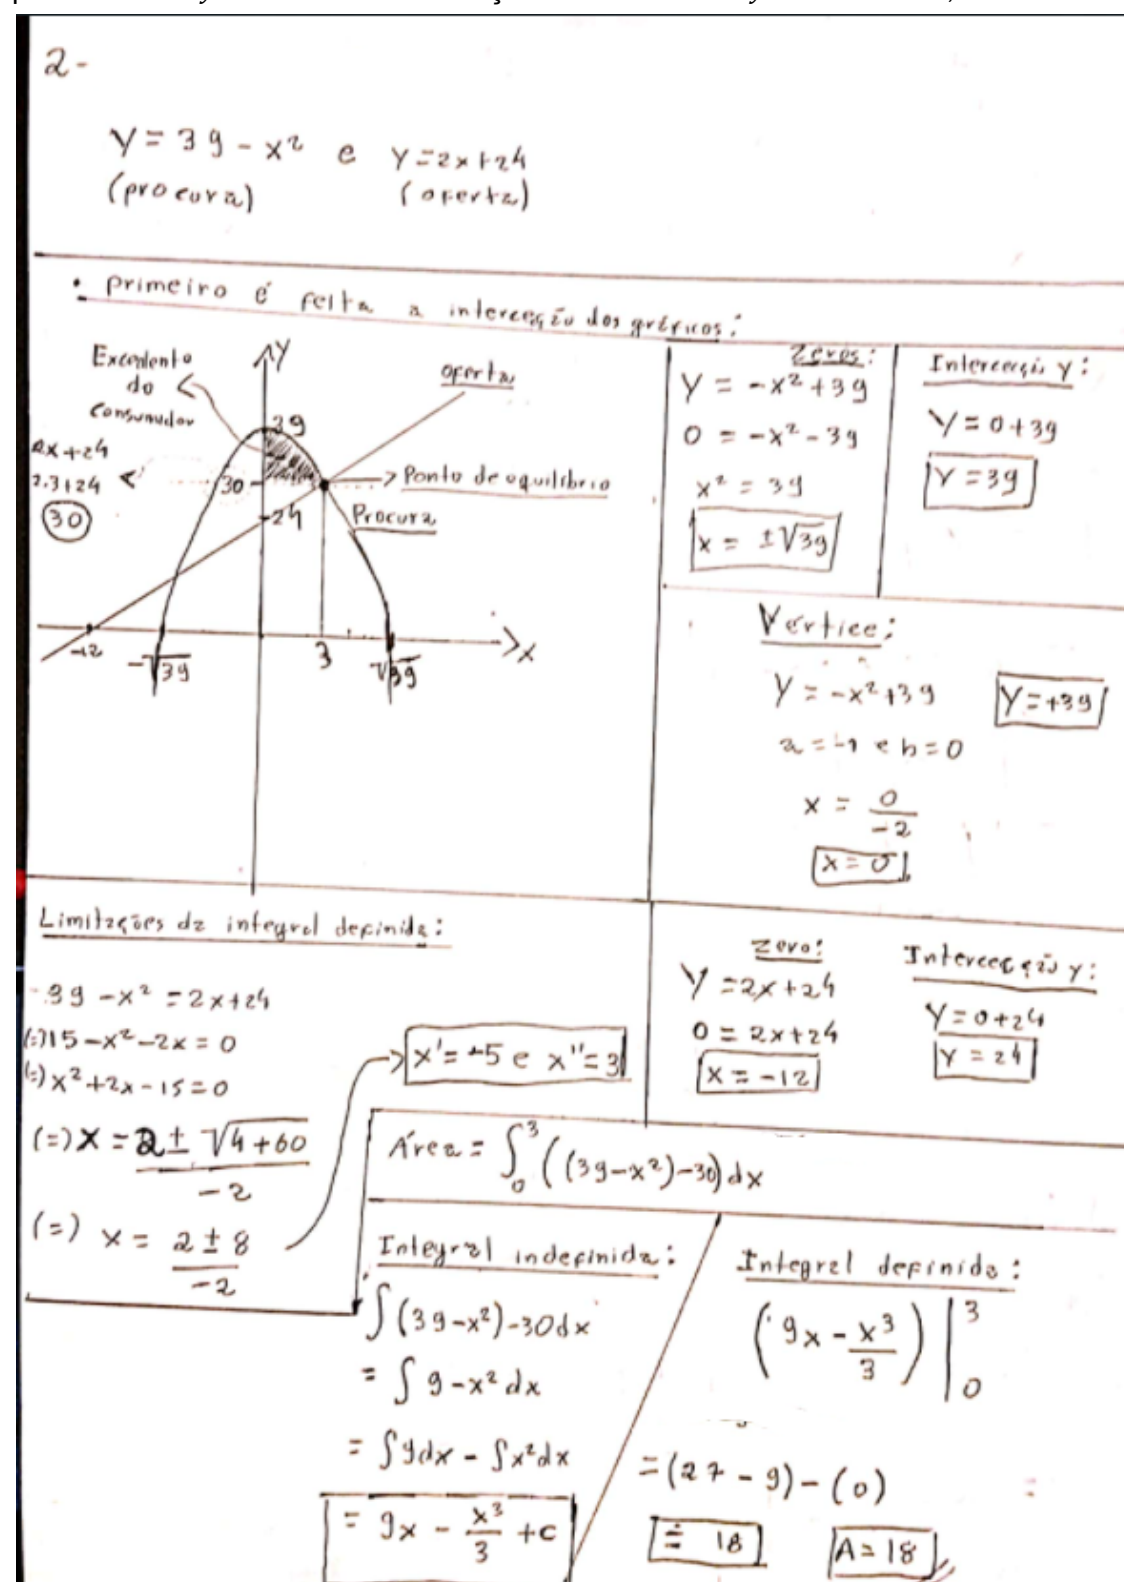 2-
Y = 39 - x² e Y = 2x + 24
(procura) (oferta)
• primeiro é feita a interceção dos gráficos:
Excedente do consumidor
Y
oferta
39
2x + 24
2.3 + 24
30
30
→ Ponto de equilíbrio
24
Procura
-12
-√39
3
√39
X
Zeros:
Y = -x² + 39
0 = -x² - 39
x² = 39
x = ±√39
Intercecção Y:
Y = 0 + 39
Y = 39
Vértice:
Y = -x² + 39
Y = +39
a = -1 e b = 0
x = 0/-2
x = 0
Limitações da integral definida:
39 - x² = 2x + 24
(=) 15 - x² - 2x = 0
(=) x² + 2x - 15 = 0
(=) x = 2 ± √4+60 / -2
(=) x = 2 ± 8 / -2
x' = -5 e x'' = 3
Zero:
Y = 2x + 24
0 = 2x + 24
x = -12
Intercecção Y:
Y = 0 + 24
Y = 24
Área = ∫₀³ ((39 - x²) - 30) dx
Integral indefinida:
∫ (39 - x²) - 30 dx
= ∫ 9 - x² dx
= ∫ 9dx - ∫ x² dx
= 9x - x³/3 + c
Integral definida:
(9x - x³/3) |₀³
= (27 - 9) - (0)
= 18
A = 18